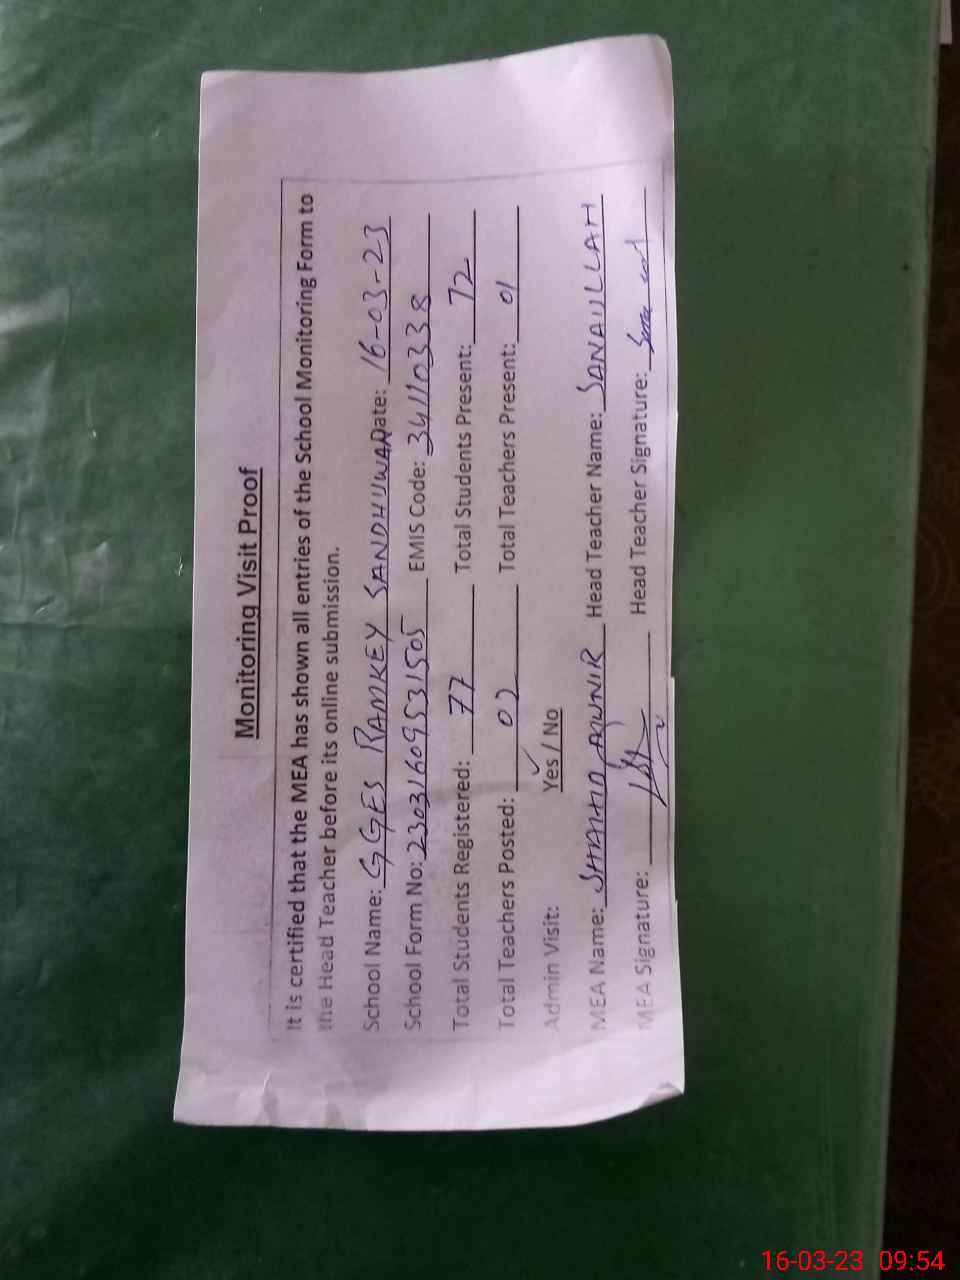 Monitoring Visit Proof
It is certified that the MEA has shown all entries of the School Monitoring Form to
the Head Teacher before its online submission.
School Name: GGES RAMKEY SANDHUWAN Date: 16-03-23
School Form No: 23031609531505 EMIS Code: 34110338
Total Students Registered: 77 Total Students Present: 72
Total Teachers Posted: 02 Total Teachers Present: 01
Admin Visit: Yes / No
MEA Name: SHAHID MUNIR Head Teacher Name: SANAULLAH
MEA Signature: Head Teacher Signature:
16-03-23 09:54